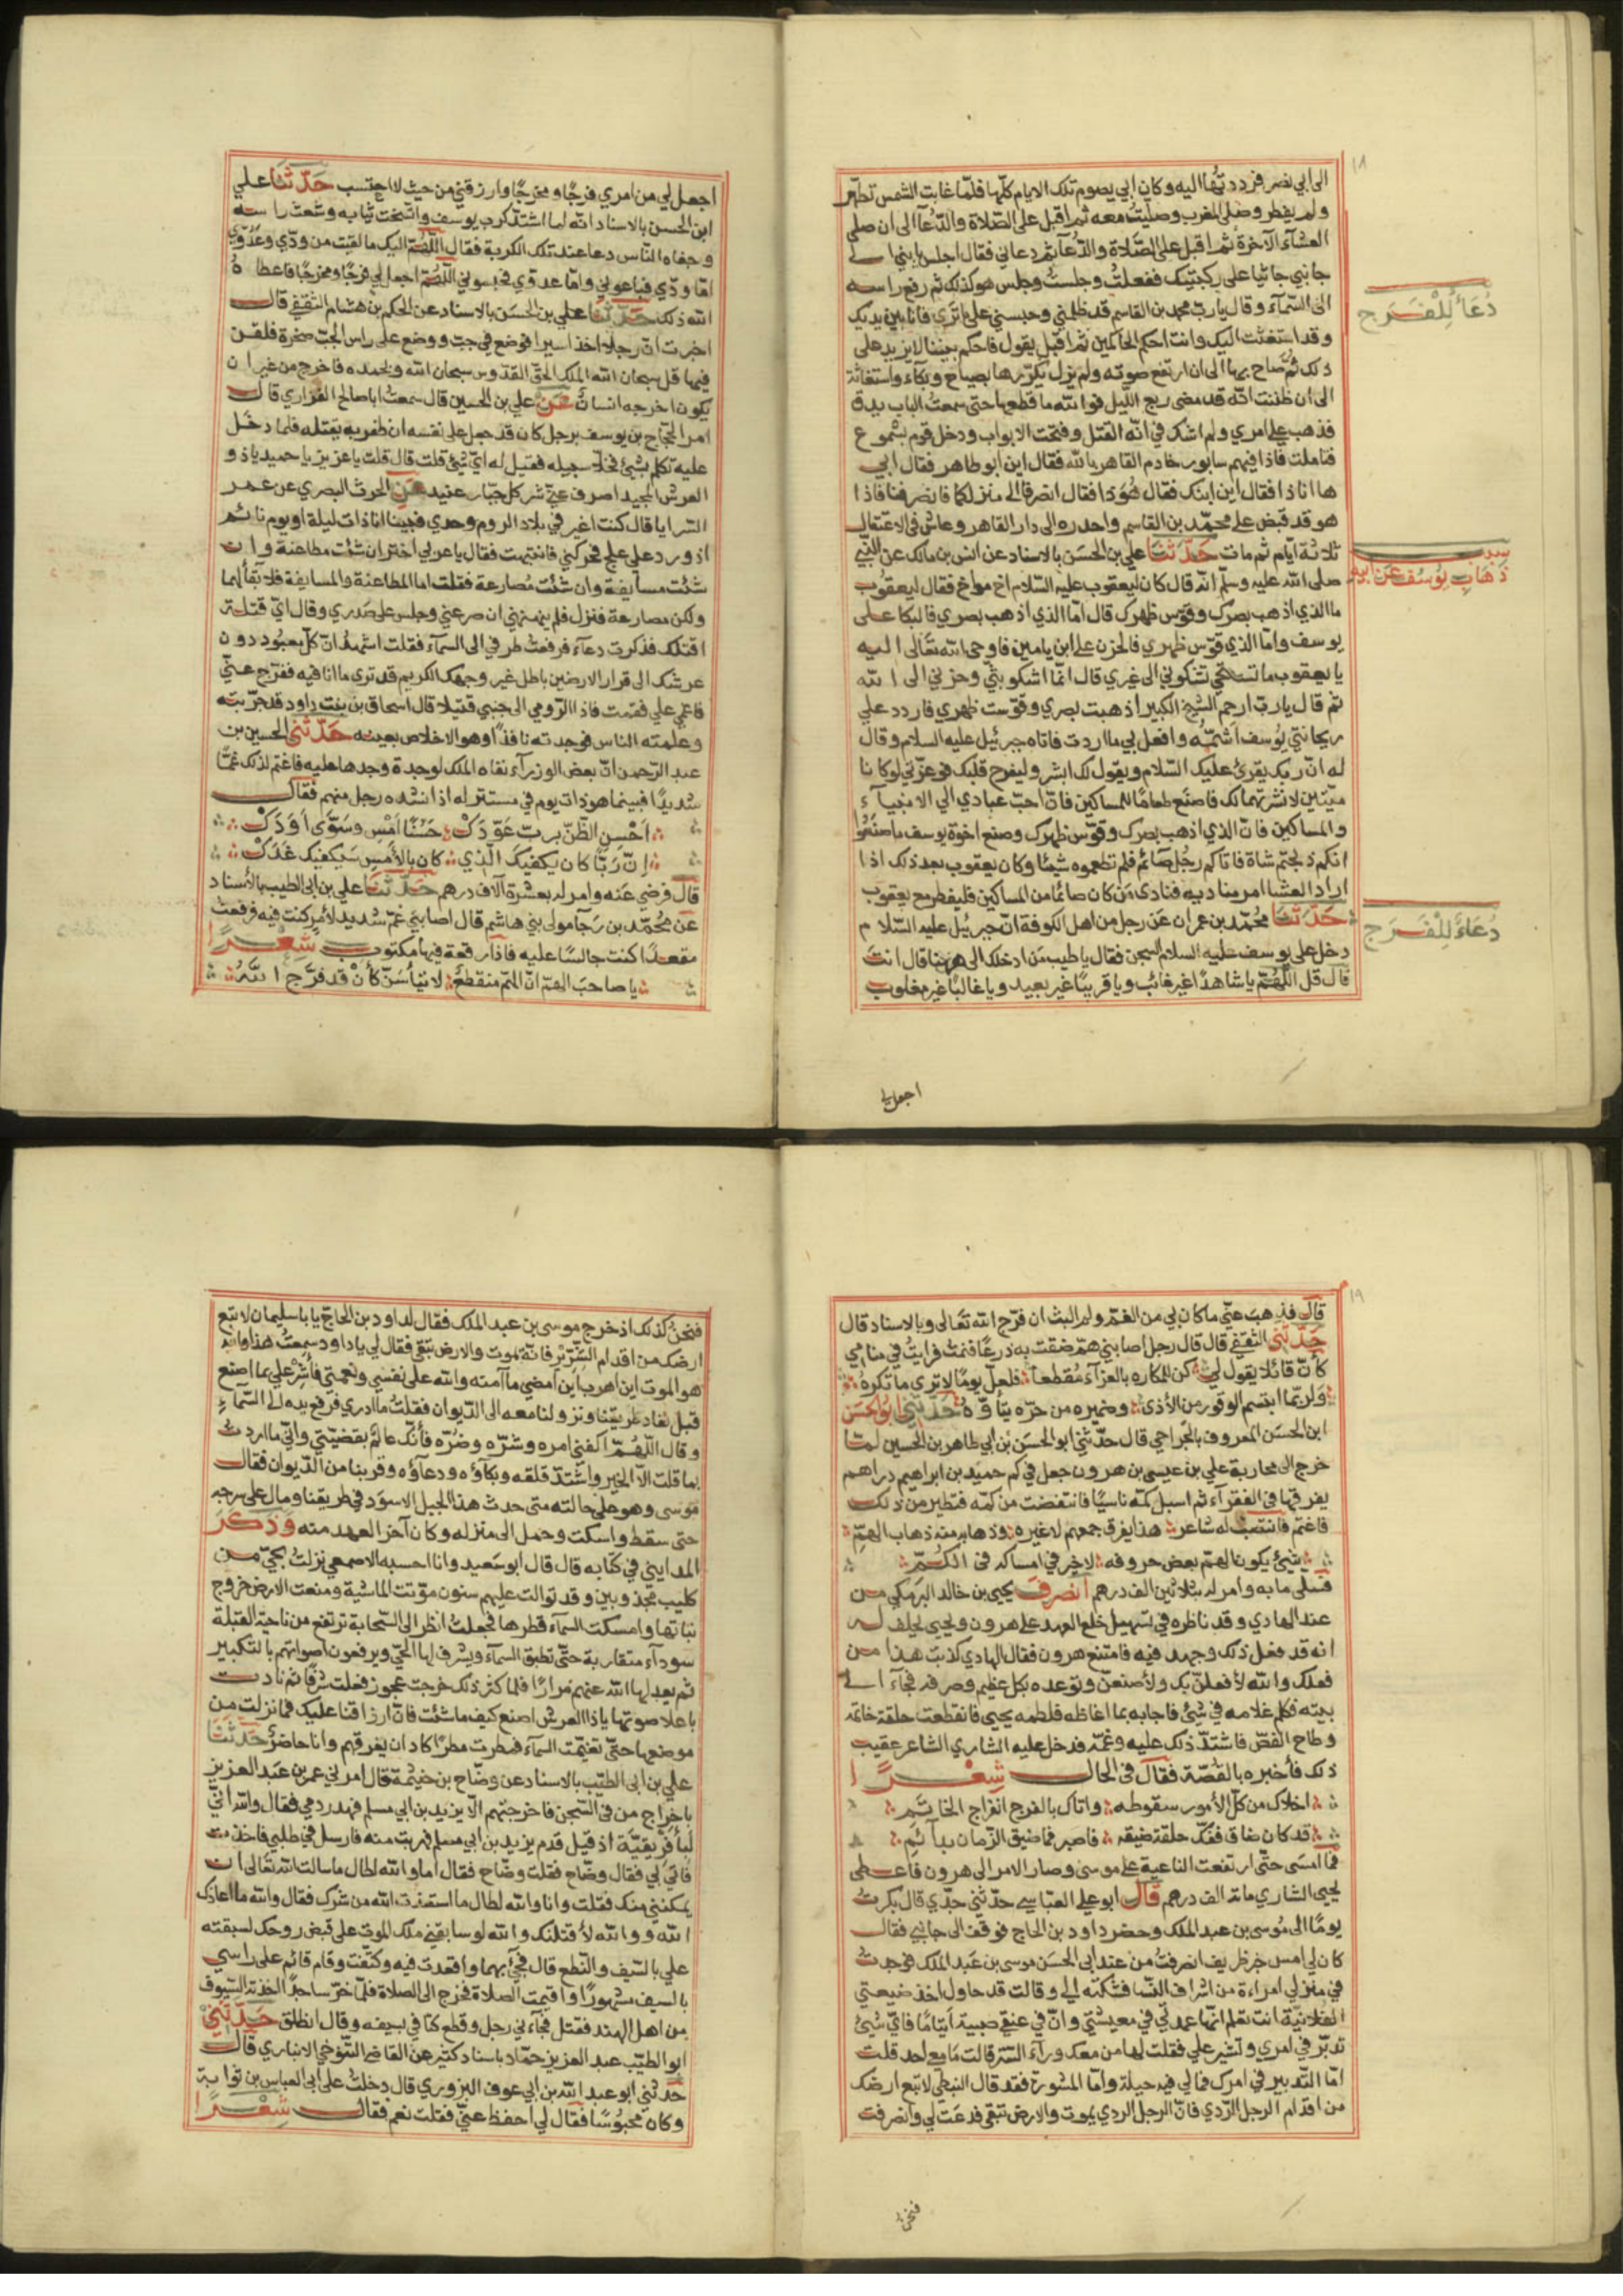 ١٨
الى ابي نصر فرددتها اليه وكان ابي يصوم تلك الايام كلها فلما غابت الشمس تطهر
ولم يفطر وصلى المغرب وصليت معه ثم اقبل على الصلاة والدعا الى ان صلى
العشآء الآخرة ثم اقبل على الصلاة والدعآء ثم دعاني فقال اجلس يا بني الى
جانبي جاثيا على ركبتيك ففعلت وجلست وجلس هو كذلك ثم رفع راسه
الى السمآء وقال يارب محمد بن القاسم قد ظلمني وحبسني على ما ترى فانا بين يديك
وقد استغثت اليك وانت احكم الحاكمين ثم اقبل يقول فاحكم بيننا لا يزيد على
ذلك ثم صاح بها الى ان ارتفع صوته ولم يزل يكررها بصياح وبكآء واستغاثة
الى ان ظننت انه قد مضى ربع الليل فوالله ما قطعها حتى سمعت الباب يدق
فذهب علي امري ولم اشك في انه القتل وفتحت الابواب ودخل قوم بشموع
فتاملت فاذا فيهم سابور خادم القاهر بالله فقال اين ابو طاهر فقال ابي
ها انا ذا فقال اين ابنك فقال هو ذا فقال انصرفا الى منزلكما فانصرفنا فاذا
هو قد قبض على محمد بن القاسم واحدره الى دار القاهر وعاش في الاعتقال
ثلاثة ايام ثم مات حدثنا علي بن الحسن بالاسناد عن انس بن مالك عن النبي
صلى الله عليه وسلم انه قال كان ليعقوب عليه السلام اخ مواخ فقال ليعقوب
ما الذي اذهب بصرك وقوس ظهرك قال اما الذي اذهب بصري فالبكا على
يوسف واما الذي قوس ظهري فالحزن على ابن يامين فاوحى الله تعالى اليه
يا يعقوب ما تستحي تشكوني الى غيري قال انما اشكو بثي وحزني الى الله
ثم قال يارب ارحم الشيخ الكبير اذهبت بصري وقوست ظهري فاردد علي
ريحانتي يوسف اشمه وافعل بي ما اردت فاتاه جبرئيل عليه السلام وقال
له ان ربك يقرئ عليك السلام ويقول لك ابشر وليفرح قلبك فوعزتي لو كانا
ميتين لانشرتهما لك فاصنع طعاما للمساكين فان احب عبادي الي الانبيآء
والمساكين فان الذي اذهب بصرك وقوس ظهرك وصنع اخوة يوسف ما صنعوا
انكم ذبحتم شاة فاتاكم رجل صائم فلم تطعموه شيئا وكان يعقوب بعد ذلك اذا
اراد العشا امر مناديه فنادى من كان صائما من المساكين فليفطر مع يعقوب
حدثنا محمد بن عمران عن رجل من اهل الكوفة ان جبرئيل عليه السلام
دخل على يوسف عليه السلام السجن فقال يا طيب من ادخلك الى هاهنا قال انت
قال قل اللهم يا شاهدا غير غائب ويا قريبا غير بعيد ويا غالبا غير مغلوب
دعآء للفرج
سبب
ذهاب يوسف عن ابيه
دعآء للفرج
اجعل لي
اجعل لي من امري فرجا ومخرجا وارزقني من حيث لا احتسب حدثنا علي
ابن الحسن بالاسناد انه لما اشتد كرب يوسف واتسخت ثيابه وشعث راسه
وجفاه الناس دعا عند تلك الكربة فقال اللهم اليك ما لقيت من ودي وعدوي
اما ودي فباعوني واما عدوي فحبسوني اللهم اجعل لي فرجا ومخرجا فاعطاه
الله ذلك حدثنا علي بن الحسن بالاسناد عن الحكم بن هشام الثقفي قال
اخبرت ان رجلا اخذ اسيرا فوضع في جب ووضع على راس الجب صخرة فلقن
فيها قل سبحان الله الملك الحق القدوس سبحان الله وبحمده فاخرج من غير ان
يكون اخرجه انسان عن علي بن الحسين قال سمعت ابا صالح الفزاري قال
امر الحجاج بن يوسف برجل كان قد جعل على نفسه ان ظفر به يقتله فلما دخل
عليه تكلم بشئ فخلا سبيله فقيل له اي شئ قلت قال قلت يا عزيز يا حميد يا ذو
العرش المجيد اصرف عني شر كل جبار عنيد عن الحرث البصري عن عمر
السرايا قال كنت اغير في بلاد الروم وحدي فبينا انا ذات ليلة او يوم نائم
اذ ورد علي علج فحركني فانتبهت فقال يا عربي اختر ان شئت مطاعنة وان
شئت مسايفة وان شئت مصارعة فقلت اما المطاعنة والمسايفة فلا بقا لهما
ولكن مصارعة فنزل فلم ينهنهني ان صرعني وجلس على صدري وقال اي قتلة
اقتلك فذكرت دعآء فرفعت طرفي الى السمآء فقلت اشهد ان كل معبود دون
عرشك الى قرار الارضين باطل غير وجهك الكريم قد ترى ما انا فيه ففرج عني
فاغمي علي فقمت فاذا الرومي الى جنبي قتيلا قال اسحاق بن بنت داود قد جربته
وعلمته الناس فوجدته نافذا وهو الاخلاص بعينه حدثني الحسين بن
عبد الرحمن ان بعض الوزرآء نفاه الملك لوجدة وجدها عليه فاغتم لذلك غما
شديدا فبينما هو ذات يوم في مستتر له اذ انشده رجل منهم فقال
احسن الظن برب عودك حسنا امس وسوى اودك
ان ربا كان يكفيك الذي كان بالامس سيكفيك غدك
قال فرضي عنه وامر له بعشرة آلاف درهم حدثنا علي بن ابي الطيب بالاسناد
عن محمد بن رجآ مولى بني هاشم قال اصابني غم شديد لامر كنت فيه فرفعت
مقعدا كنت جالسا عليه فاذا رقعة فيها مكتوب شعرا
يا صاحب الهم ان الهم منقطع لا تيأسن كأن قد فرج الله
١٩
قال فذهب عني ما كان بي من الغم ولم البث ان فرج الله تعالى وبالاسناد قال
حدثني الثقفي قال قال رجل اصابني هم ضقت به ذرعا فنمت فرايت في منامي
كأن قائلا يقول لي كن للمكاره بالعزآء مقطعا فلعل يوما لا ترى ما تكره
ولربما ابتسم الوقور من الأذى وضميره من حره يتأوه حدثني ابو الحسن
ابن الحسن المعروف بالجراحي قال حدثني ابو الحسن بن ابي طاهر بن الحسين لما
خرج الى محاربة علي بن عيسى بن هرون جعل في كم حميد بن ابراهيم دراهم
يفرقها في الفقرآء ثم اسبل كمه ناسيا فانتفضت من كمه فتطير من ذلك
فاغتم فانتصب له شاعر هذا يفرق جمعهم لا غيره وذهابه منه ذهاب الهم
شئ يكون الهم بعض حروفه لا خير في امساكه في الكم
فسلى ما به وامر له بثلاثين الف درهم انصرف يحيى بن خالد البرمكي من
عند الهادي وقد ناظره في تسهيل خلع العهد على هرون ويحيى يحلف له
انه قد فعل ذلك وجهد فيه فامتنع هرون فقال الهادي كذبت هذا من
فعلك والله لأفعلن بك ولأصنعن وتوعده بكل عظيم وصرفه فجآء الى
بيته فكلم غلامه في شئ فاجابه بما اغاظه فلطمه يحيى فانقطعت حلقة خاتمه
وطاح الفص فاشتد ذلك عليه وغمه فدخل عليه الشاري الشاعر عقيب
ذلك فأخبره بالقصة فقال في الحال شعرا
اخلاك من كل الأمور سقوطه واتاك بالفرج انفراج الخاتم
قد كان ضاق ففك حلقة ضيقه فاصبر فما ضيق الزمان بدآئم
فما امسى حتى ارتفعت الناعية على موسى وصار الامر الى هرون فاعطى
يحيى الشاري مائة الف درهم قال ابو علي العباسي حدثني جدي قال بكرت
يوما الى موسى بن عبد الملك وحضر داود بن الحاج فوقف الى جانبي فقال
كان لي امس خبر ظريف انصرفت من عند ابي الحسن موسى بن عبد الملك فوجدت
في منزلي امراءة من اشراف النسا فشكته الي وقالت قد حاول اخذ ضيعتي
الفلانية انت تعلم انها عمدتي في معيشتي وان في عنقي صبية ايتاما فاي شئ
تدبر في امري وتشير علي فقلت لها من معك ورآء الستر قالت ما معي احد قلت
اما التدبير في امرك فمالي فيه حيلة واما المشورة فقد قال النبطي لا تبع ارضك
من اقدام الرجل الردي فان الرجل الردي يموت والارض تبقى فدعت لي وانصرفت
فنحن
فنحن كذلك اذ خرج موسى بن عبد الملك فقال لداود بن الحاج يا با سليمان لا تبع
ارضك من اقدام الشرير فانه يموت والارض تبقى فقال لي يا داود سمعت هذا والله
هو الموت اين اهرب اين امضي ما آمنه والله على نفسي ونعمتي فأشر علي بما اصنع
قبل نفاد طريقنا ونزولنا معه الى الديوان فقلت ما ادري فرفع يده الى السمآء
وقال اللهم اكفني امره وشره وضره فأنك عالم بقضيتي واني ما اردت
بما قلت الا الخير واشتد قلقه وبكآؤه ودعآؤه وقربنا من الديوان فقال
موسى وهو على حالته متى حدث هذا الجبل الاسود في طريقنا ومال على سرجه
حتى سقط واسكت وحمل الى منزله وكان آخر العهد منه وذكر
المدايني في كتابه قال قال ابو سعيد وانا احسبه الاصمعي نزلت بحي من
كليب مجذوبين وقد توالت عليهم سنون موتت الماشية ومنعت الارض خروج
نباتها وامسكت السمآء قطرها فجعلت انظر الى السحابة ترتفع من ناحية القبلة
سودآء متقاربة حتى تطبق السمآء ويشرف لها الحي ويرفعون اصواتهم بالتكبير
ثم يعدلها الله عنهم مرارا فلما كثر ذلك خرجت عجوز فعلت شرفا ثم نادت
باعلا صوتها يا ذا العرش اصنع كيف ما شئت فان ارزاقنا عليك فما نزلت من
موضعها حتى تغيمت السمآء فمطرت مطرا كاد ان يغرقهم وانا حاضر حدثنا
علي بن ابي الطيب بالاسناد عن وضاح بن خيثمة قال امرني عمر بن عبد العزيز
باخراج من في السجن فاخرجتهم الا يزيد بن ابي مسلم فهدر دمي فقال والله اني
لبأفريقية اذ قيل قدم يزيد بن ابي مسلم فهربت منه فارسل في طلبي فاخذت
فاتي بي فقال وضاح فقلت وضاح فقال اما والله لطال ما سالت الله تعالى ان
يمكنني منك فقلت وانا والله لطال ما استعذت الله من شرك فقال والله ما اعاذك
الله ووالله لأقتلنك والله لو سابقني ملك الموت على قبض روحك لسبقته
علي بالسيف والنطع قال فجئ بهما واقعدت فيه وكتفت وقام قائم على راسي
بالسيف مشهورا واقيمت الصلاة فخرج الى الصلاة فلما خر ساجدا اخذته السيوف
من اهل الهند فقتل فجآءني رجل وقطع كتافي بسيفه وقال انطلق حدثني
ابو الطيب عبد العزيز حماد باسناد كثير عن القاضي التنوخي الانباري قال
حدثني ابو عبد الله بن ابي عوف البزوري قال دخلت على ابي العباس بن توابة
وكان محبوسا فقال لي احفظ عني فقلت نعم فقال شعرا